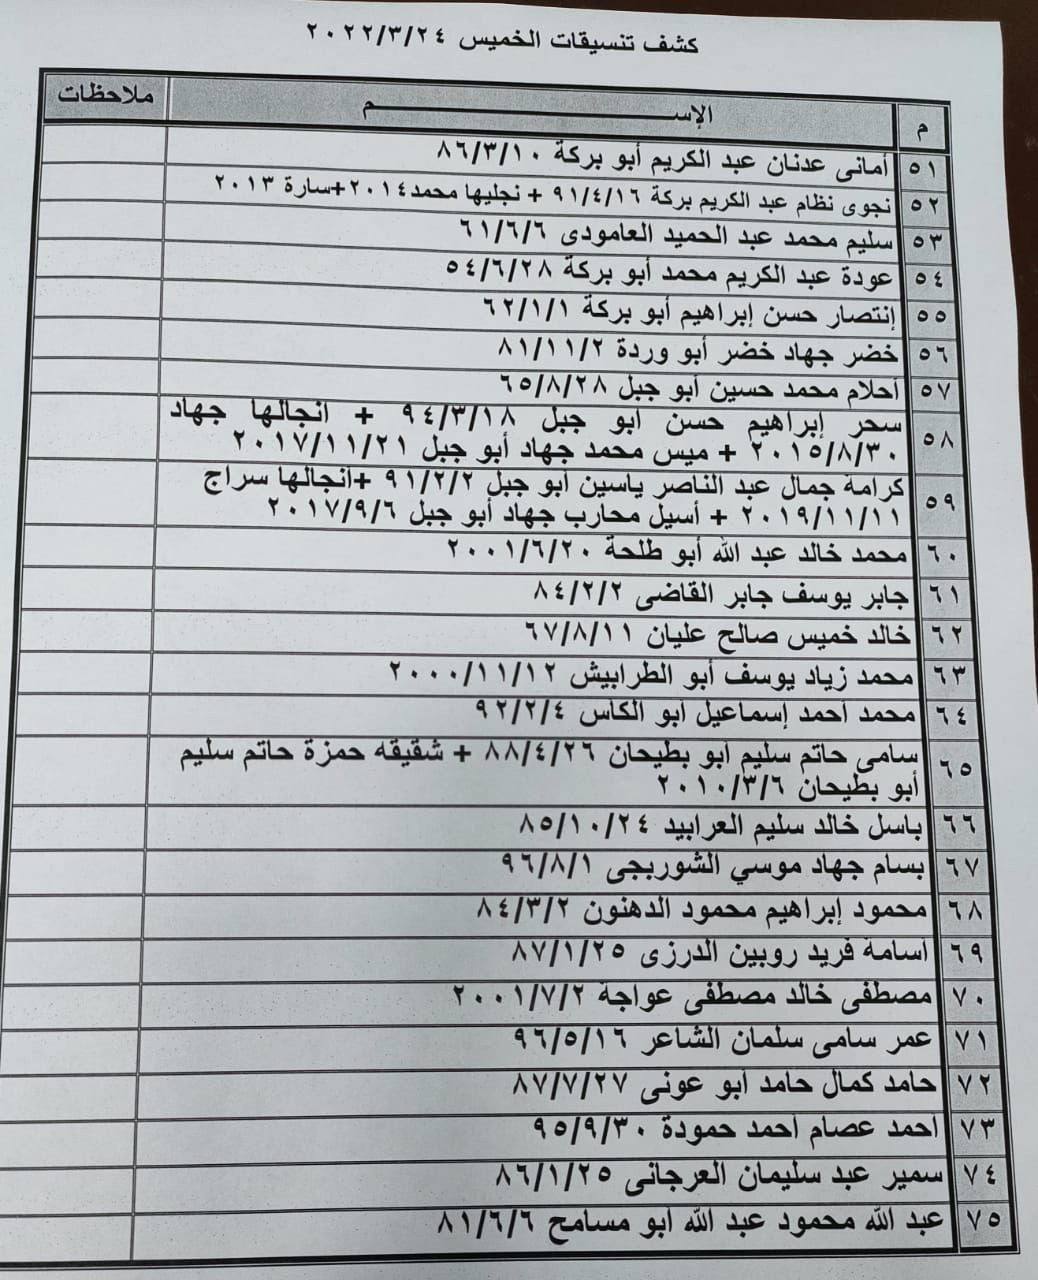 كشف تنسيقات الخميس ٢٠٢٢/٣/٢٤
م الإســـــــــــــم ملاحظات
٥١ أمانى عدنان عبد الكريم أبو بركة ٨٦/٣/١٠
٥٢ نجوى نظام عبد الكريم بركة ٩١/٤/١٦ + نجليها محمد٢٠١٤+سارة ٢٠١٣
٥٣ سليم محمد عبد الحميد العامودى ٦١/٦/٦
٥٤ عودة عبد الكريم محمد أبو بركة ٥٤/٦/٢٨
٥٥ إنتصار حسن إبراهيم أبو بركة ٦٢/١/١
٥٦ خضر جهاد خضر أبو وردة ٨١/١١/٢
٥٧ أحلام محمد حسين أبو جبل ٦٥/٨/٢٨
٥٨ سحر إبراهيم حسن أبو جبل ٩٤/٣/١٨ + أنجالها جهاد
٢٠١٥/٨/٣٠ + ميس محمد جهاد أبو جبل ٢٠١٧/١١/٢١
٥٩ كرامة جمال عبد الناصر ياسين أبو جبل ٩١/٢/٢ +أنجالها سراج
٢٠١٩/١١/١١ + أسيل محارب جهاد أبو جبل ٢٠١٧/٩/٦
٦٠ محمد خالد عبد الله أبو طلحة ٢٠٠١/٦/٢٠
٦١ جابر يوسف جابر القاضى ٨٤/٢/٢
٦٢ خالد خميس صالح عليان ٦٧/٨/١١
٦٣ محمد زياد يوسف أبو الطرابيش ٢٠٠٠/١١/١٢
٦٤ محمد أحمد إسماعيل أبو الكاس ٩٢/٢/٤
٦٥ سامى حاتم سليم أبو بطيحان ٨٨/٤/٢٦ + شقيقه حمزة حاتم سليم
أبو بطيحان ٢٠١٠/٣/٦
٦٦ باسل خالد سليم العرابيد ٨٥/١٠/٢٤
٦٧ بسام جهاد موسي الشوربجى ٩٦/٨/١
٦٨ محمود إبراهيم محمود الدهنون ٨٤/٣/٢
٦٩ أسامة فريد روبين الدرزى ٨٧/١/٢٥
٧٠ مصطفى خالد مصطفى عواجة ٢٠٠١/٧/٢
٧١ عمر سامى سلمان الشاعر ٩٦/٥/١٦
٧٢ حامد كمال حامد أبو عونى ٨٧/٧/٢٧
٧٣ أحمد عصام أحمد حمودة ٩٥/٩/٣٠
٧٤ سمير عبد سليمان العرجانى ٨٦/١/٢٥
٧٥ عبد الله محمود عبد الله أبو مسامح ٨١/٦/٦